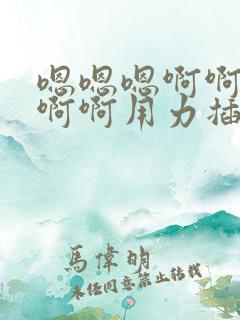 嗯嗯嗯啊啊
啊啊用力插
馬偉明
未经同意禁止转载